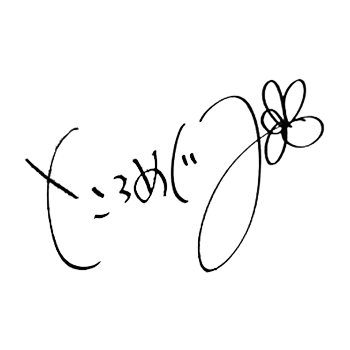 ところめぐみ